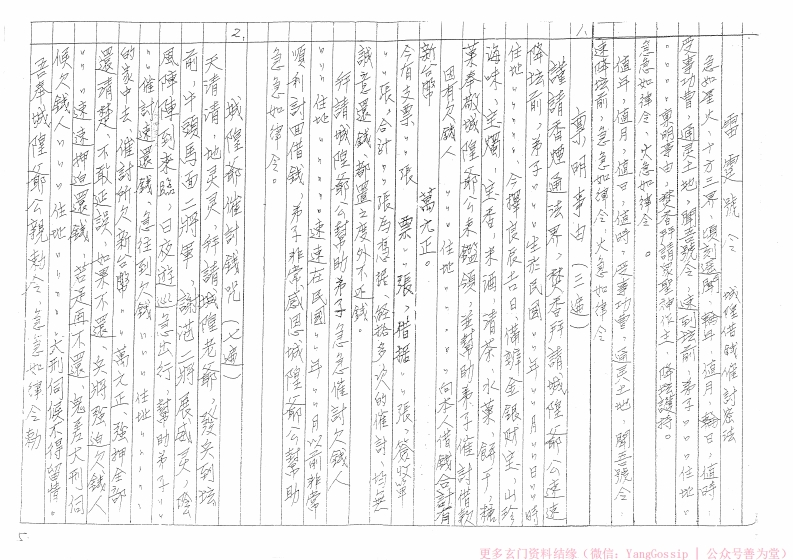 城隍借賬催討忿法
雷霆號令
急如星火，十方三界，頃刻遙聞，輪年，值月，輪日，值時，
受事功曹，通灵土地，聞吾號令，速到坛前，弟子〃〃〃住地〃
〃〃〃稟明事由，焚香拜請家聖神作主，降坛護持。
急急如律令，火急如律令。
值年，值月，值日，值時，受事功曹，通灵土地，聞吾號令
速降坛前，急急如律令火急如律令
1.
稟明事由（三遍）
謹請香煙通法界，焚香拜請城隍爺公速速
降坛前，弟子〃〃〃生於民國〃年〃月〃日〃時
住地〃〃〃〃今擇良辰吉日，满辦金銀財宝，山珍
海味，宝燭，宝香，米酒，清茶，水菓，餅干，糖
菓奉敬城隍爺公来鑑領，並幫助弟子催討借款
因有欠錢人〃〃〃住地〃〃〃〃向本人借錢合計有
新台幣　萬元正。
今有支票〃張，票〃張，借據〃張，簽收單
〃張，合計〃張為憑據，經拾多次的催討，均無
誠意還錢，都置之度外不还錢
拜請城隍爺公幫助弟子急急催討欠錢人
〃〃〃住地〃〃〃〃速速在民國〃年〃月以前非常
順利討回借錢，弟子非常感恩城隍爺公幫助
急急如律令。
2.
城隍爺催討錢咒（七遍）
天清清，地灵灵，拜請城隍老爺，發兵到坛
前，牛頭馬面二將軍，謝范二將展威灵，陰
風陣陣到來臨，日夜遊巡急出行，幫助弟子〃〃
〃催討速還錢，急往到欠錢〃〃〃住地〃〃〃〃
的家中去，催討所欠新台幣〃〃萬元正，強押全部
還清楚，不敢延誤，如果不還，兵將強迫欠錢人
〃〃〃速速押迫還錢，若是再不還，鬼差大刑伺
候欠錢人〃〃〃住地〃〃〃〃大刑伺候不得留情。
吾奉城隍爺公親勅令，急急如律令勅
5
更多玄门资料结缘（微信：YangGossip | 公众号善为堂）